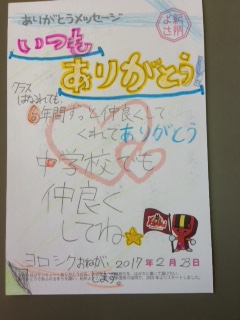 ありがとうメッセージ
いつも
ありがとう
クラス
はなれても、
6年間ずっと仲良くして
くれてありがとう
中学校でも
仲良く
してね
ヨロシクおねがい
します。
2017年2月23日